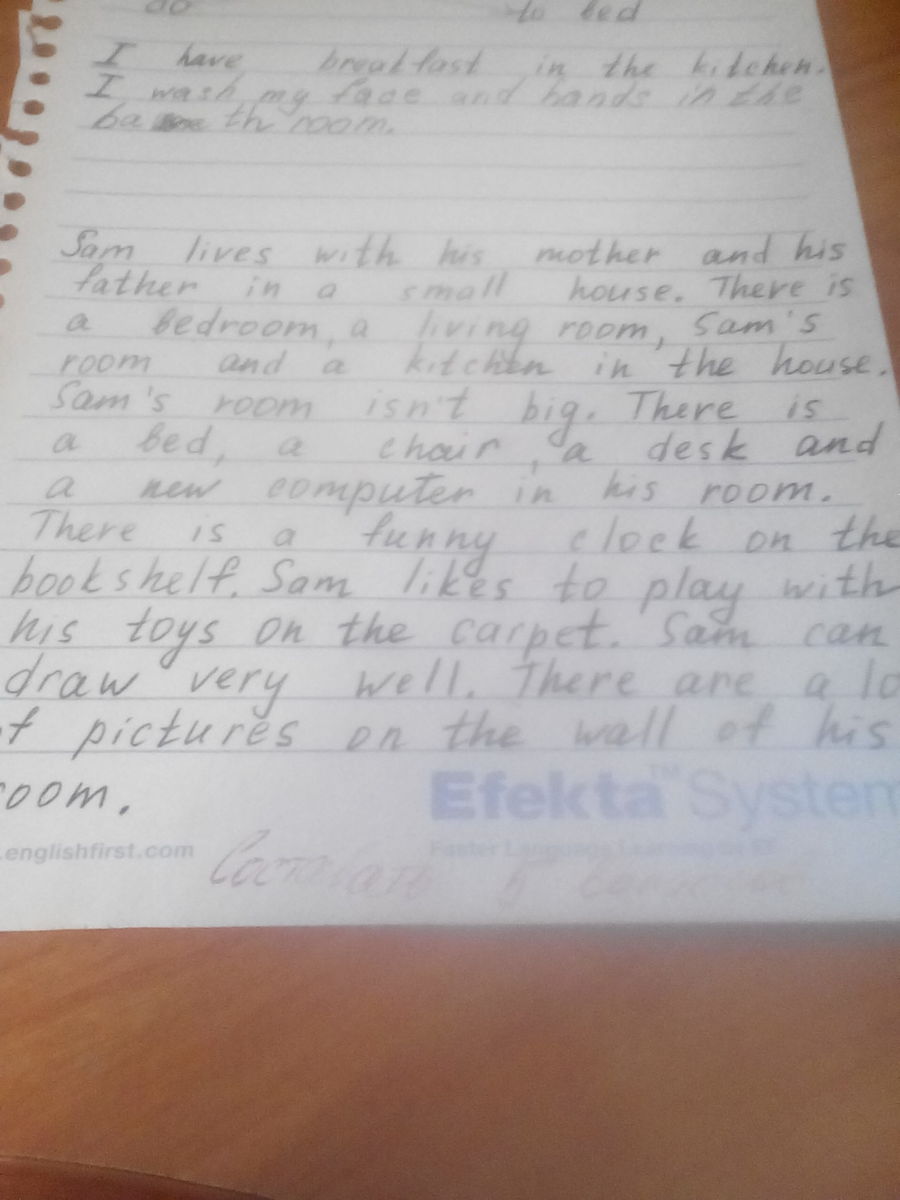 do to bed
I have breakfast in the kitchen.
I wash my face and hands in the
ba th room.
Sam lives with his mother and his
father in a small house. There is
a bedroom, a living room, Sam's
room and a kitchen in the house.
Sam's room isn't big. There is
a bed, a chair, a desk and
a new computer in his room.
There is a funny clock on the
bookshelf. Sam likes to play with
his toys on the carpet. Sam can
draw very well. There are a lo
f pictures on the wall of his
oom.
Efekta™ System
.englishfirst.com
Faster Language Learning by EF